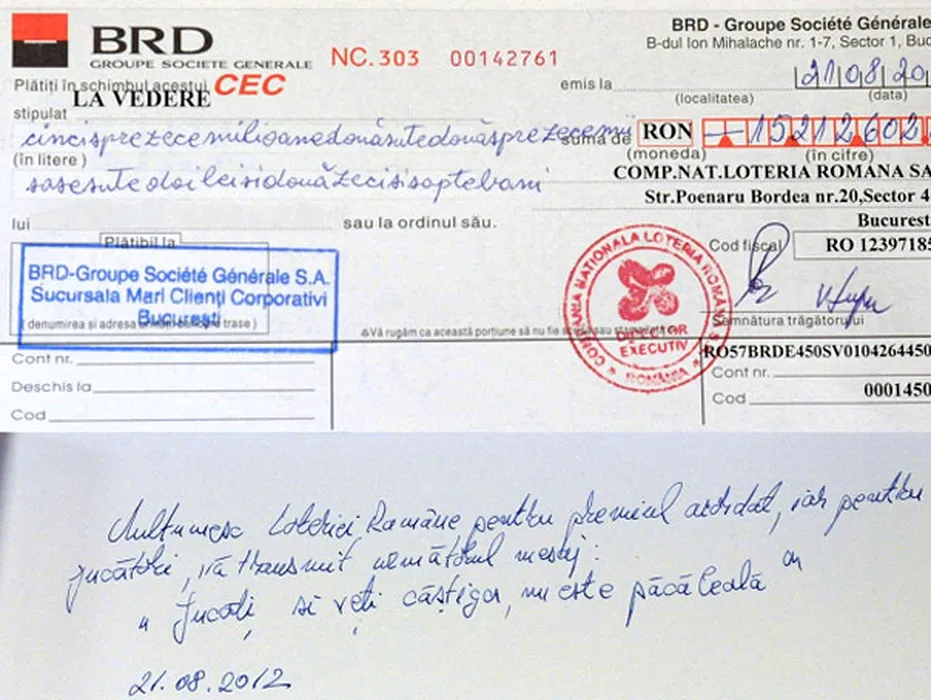 BRD
GROUPE SOCIETE GENERALE
NC. 303 00142761
BRD - Groupe Société Générale
B-dul Ion Mihalache nr. 1-7, Sector 1, Buc
Plătiți în schimbul acestui CEC
emis la 21/08/20
(localitatea) (data)
LA VEDERE
stipulat
cincisprezecemilioanedouăsutedouăsprezecemii
(în litere)
suma de RON 15212602
(moneda) (în cifre)
sasesutedoileisidouăzecisisaptebani
COMP.NAT.LOTERIA ROMANA SA
Str.Poenaru Bordea nr.20,Sector 4
Bucurest
lui sau la ordinul său.
Plătibil la
Cod fiscal RO 12397185
BRD-Groupe Société Générale S.A.
Sucursala Mari Clienți Corporativi
București
(denumirea și adresa trase)
&Vă rugăm ca această porțiune să nu fie sau
COMPANIA NAȚIONALA LOTERIA ROMÂNĂ S.A.
DIRECTOR
EXECUTIV
* ROMÂNIA *
Semnătura trăgătorului
RO57BRDE450SV0104264450
Cont nr.
Cont nr.
Deschis la
Cod 0001450
Cod
Multumesc Loteriei Române pentru premiul acordat, iar pentru
jucători, vă transmit următorul mesaj:
„Jucați, si veți câștiga, nu este păcăleală"
21.08.2012